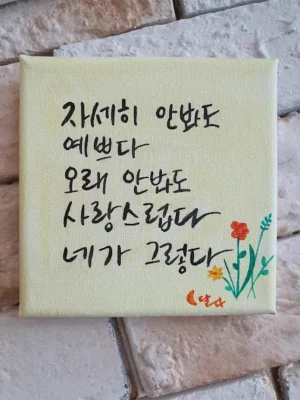 자세히 안봐도
예쁘다
오래 안봐도
사랑스럽다
네가 그렇다